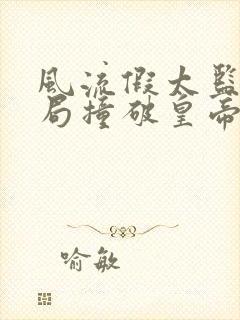 風流假太監
局撞破皇帝
喻敏